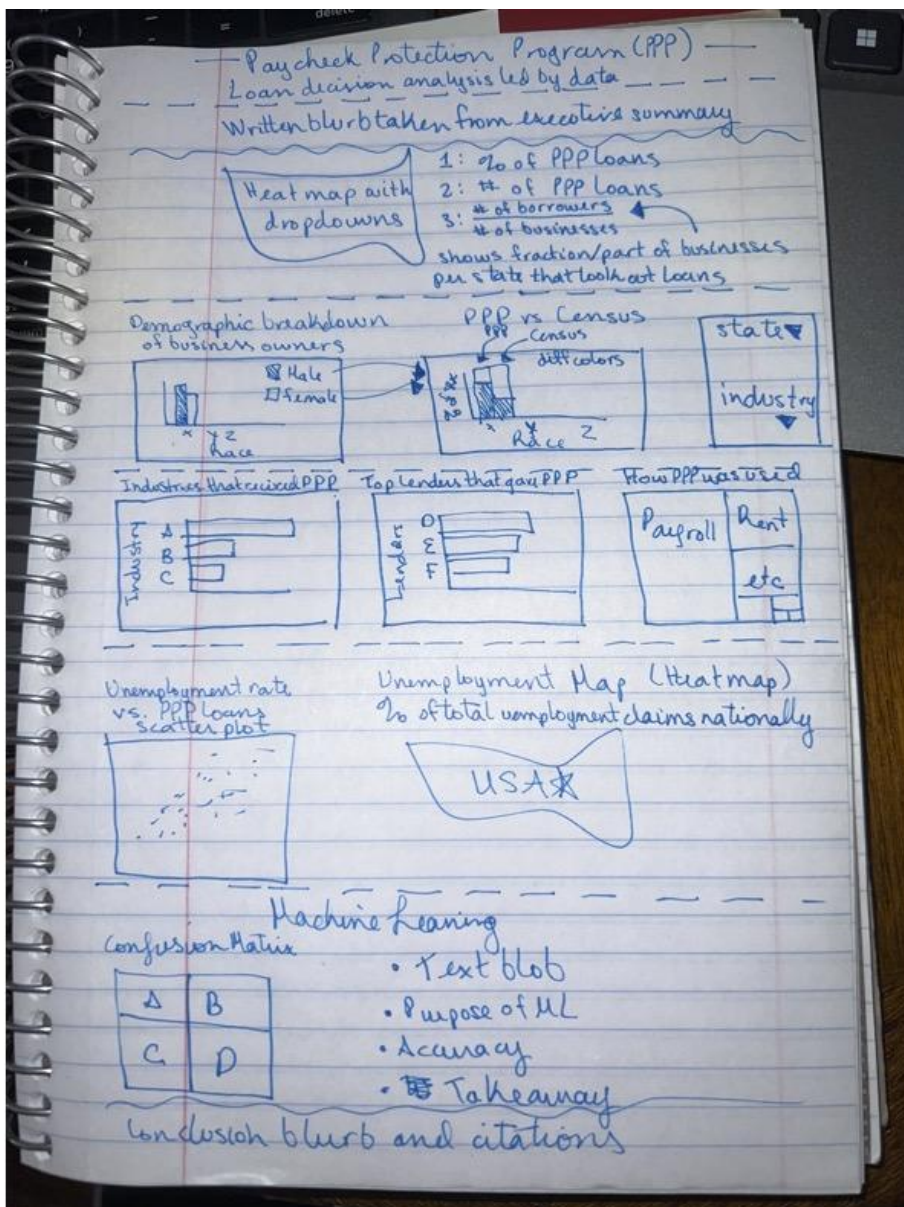 delete
Paycheck Protection Program (PPP)
Loan decision analysis led by data
Written blurb taken from executive summary
Heat map with
dropdowns
1: % of PPP loans
2: # of PPP Loans
3: # of borrowers
# of businesses
shows fraction/part of businesses
per state that took out loans
Demographic breakdown
of business owners
Male
female
x y z
Race
PPP vs Census
PPP
Census
diff colors
x y z
Race
state
industry
Industries that recived PPP
Industry
A
B
C
Top Lenders that gave PPP
Lenders
D
E
F
How PPP was used
Payroll
Rent
etc
Unemployment rate
vs. PPP Loans
scatter plot
Unemployment Map (Heatmap)
% of total unemployment claims nationally
USA
Machine Leaning
Confusion Matrix
A B
C D
• Text blob
• Purpose of ML
• Accuracy
• Takeaway
Conclusion blurb and citations